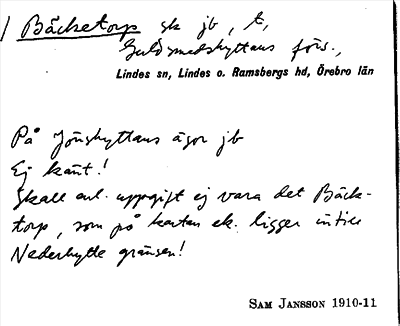 / Bäcketorp sk jb, t,
Guldsmedshyttans förs.,
Lindes sn, Lindes o. Ramsbergs hd, Örebro län
På Jönshyttans ägor jb
Ej känt!
Skall enl. uppgift ej vara det Bäck-
torp, som på kartan ek. ligger intill
Nederhytte gränsen!
SAM JANSSON 1910-11